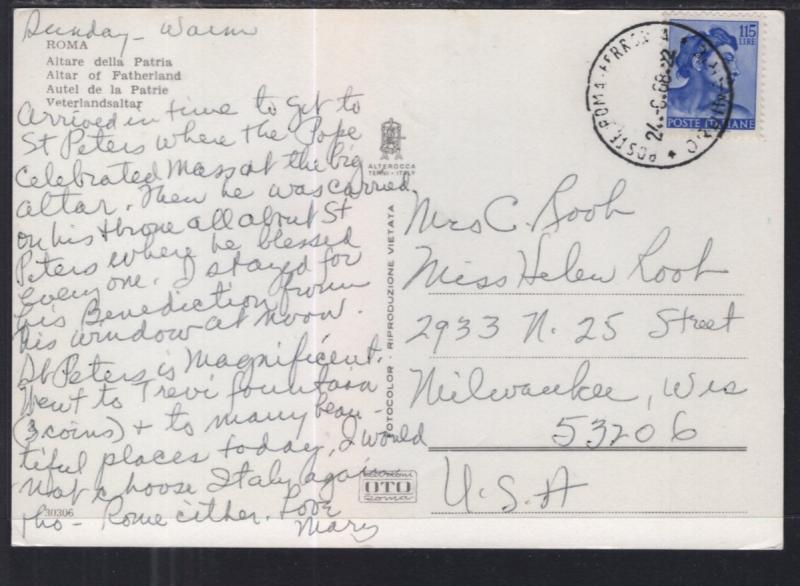 Sunday - Warm
ROMA
Altare della Patria
Altar of Fatherland
Autel de la Patrie
Veterlandsaltar
Arrived in time to get to
St Peters where the Pope
celebrated Mass at the big
altar. Then he was carried
on his throne all about St
Peters where he blessed
everyone. I stayed for
his Benediction from
his window at noon.
St Peters is Magnificent.
Went to Trevi fountain
(3 coins) + to many beau-
tiful places today, I would
not choose Italy again
tho - Rome either. Love
Mary
30306
ALTEROCCA
TERNI - ITALY
FOTOCOLOR - RIPRODUZIONE VIETATA
edizioni
OTO
Roma
115
LIRE
POSTE ITALIANE
POSTE ROMA FERROVIA
24.-6.68.-22
Mrs C. Rooh
Miss Helen Rooh
2933 N. 25 Street
Milwaukee, Wis
53206
U.S.A